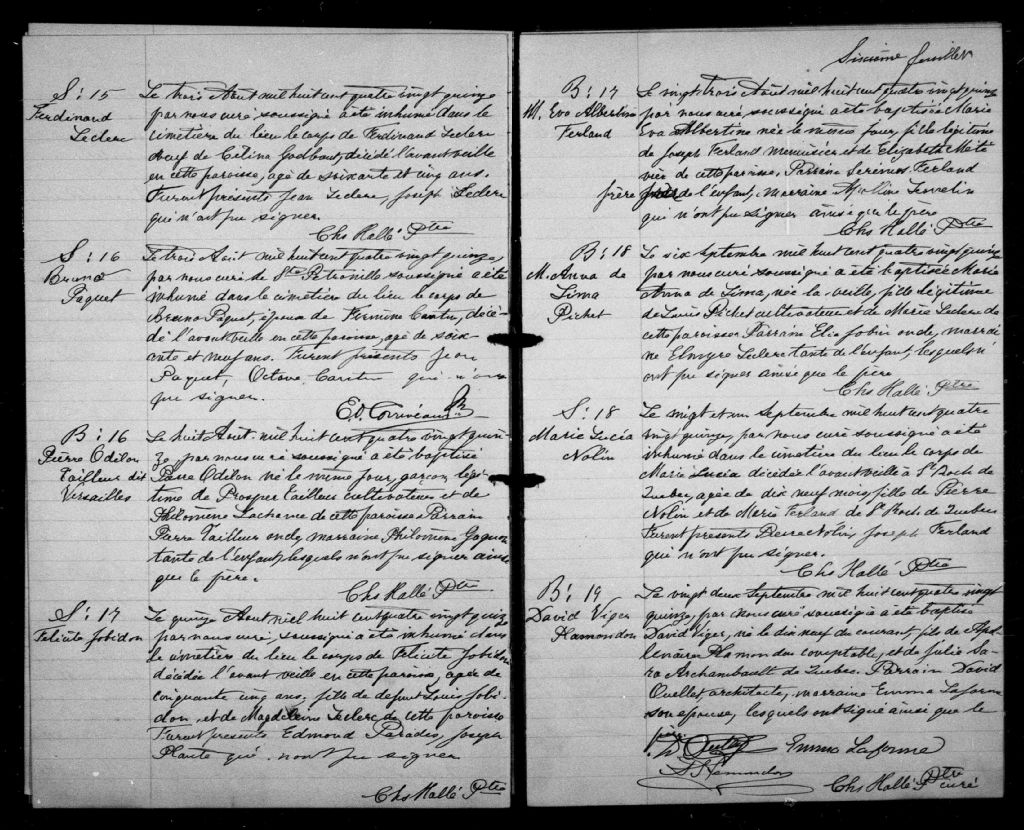 S: 15
Ferdinand
Leclerc
Le trois Aout mil huit cent quatre vingt quinze
par nous curé, soussigné a été inhumé dans le
cimetière du lieu le corps de Ferdinand Leclerc
veuf de Célina Godbout, décédé l'avant veille
en cette paroisse, agé de soixante et cinq ans.
Furent présents Jean Leclerc, Joseph Leclerc
qui n'ont pu signer.
Chs Hallé Ptre
S: 16
Bruno
Paquet
Le trois Aout mil huit cent quatre vingt quinze,
par nous curé de Ste Pétronille soussigné a été
inhumé dans le cimetière du lieu le corps de
Bruno Paquet, époux de Cantin, décé-
dé l'avant veille en cette paroisse, agé de soix-
ante et neuf ans. Furent présents Jean
Paquet, Octave Cantin qui n'ont
pu signer.
Ed. Corriveau Ptre
B: 16
Pierre Odilon
Tailleur dit
Versailles
Le huit Aout mil huit cent quatre vingt quin-
ze, par nous curé soussigné a été baptisé
Pierre Odilon né le même jour, garçon légi-
time de Prosper Tailleur cultivateur et de
Philomène Lachance de cette paroisse Parrain
Pierre Tailleur oncle, marraine Philomène Gagnon
tante de l'enfant, lesquels n'ont pu signer ainsi
que le père.
Chs Hallé Ptre
S: 17
Félicité Jobidon
Le quinze Aout mil huit cent quatre vingt quinze
par nous curé, soussigné a été inhumé dans
le cimetière du lieu le corps de Félicité Jobidon
décédée l'avant veille en cette paroisse, agée de
cinquante cinq ans, fille de defunt Louis Jobi-
don, et de Magdeleine Leclerc de cette paroisse
Furent présents Edmond Paradis, Joseph
Plante qui n'ont pu signer
Chs Hallé Ptre
Sixième feuillet
B: 17
M. Eva Albertine
Ferland
Le vingt trois Aout mil huit cent quatre vingt quinze
par nous curé, soussigné a été baptisée Marie
Eva Albertine née le même jour, fille légitime
de Joseph Ferland menuisier et de Elizabeth Méti-
vier de cette paroisse. Parrain Ferland
frère de l'enfant, marraine
qui n'ont pu signer ainsi que le père
Chs Hallé Ptre
B: 18
M. Anna de
Lima
Pichet
Le six Septembre mil huit cent quatre vingt quinze,
par nous curé soussigné a été baptisée Marie
Anna de Lima, née la veille, fille légitime
de Louis Pichet cultivateur et de Marie Leclerc de
cette paroisse Parrain Elie Jobin oncle, marrai-
ne Elmyre Leclerc tante de l'enfant, lesquels n'
ont pu signer ainsi que le père
Chs Hallé Ptre
S: 18
Marie Lucia
Nolin
Le vingt et un Septembre mil huit cent quatre
vingt quinze, par nous curé soussigné a été
inhumé dans le cimetière du lieu le corps de
Marie Lucia décédée l'avant veille à St Roch de
Quebec, agée de dix neuf mois, fille de Pierre
Nolin et de Marie Ferland de St Roch de Quebec
Furent presents Pierre Nolin, Joseph Ferland
qui n'ont pu signer.
Chs Hallé Ptre
B: 19
David Viger
Hamondon
Le vingt deux Septembre mil huit cent quatre vingt
quinze, par nous curé soussigné a été baptisé
David Viger, né le dix neuf du courant, fils de Apol-
linaire Hamondon comptable, et de Julie Sa-
ra Archambault de Quebec. Parrain David
Ouellet architecte, marraine Emma Laforme
son epouse, lesquels ont signé ainsi que le
père
D. Ouellet Emma Laforme
Chs Hallé Ptre curé